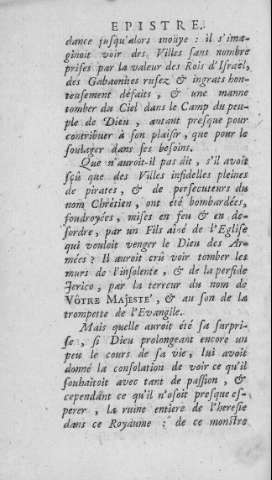 EPISTRE.
dance jusqu'alors inoüye : il s'ima-
ginoit voir des Villes sans nombre
prises par la valeur des Rois d'Israël,
des Gabaonites rusez & ingrats hon-
teusement défaits, & une manne
tomber du Ciel dans le Camp du peu-
ple de Dieu, autant presque pour
contribuer à son plaisir, que pour le
soulager dans ses besoins.
Que n'auroit-il pas dit, s'il avoit
sçû que des Villes infidelles pleines
de pirates, & de persecuteurs du
nom Chrétien, ont été bombardées,
foudroyées, mises en feu & en de-
sordre, par un Fils aîné de l'Eglise
qui vouloit venger le Dieu des Ar-
mées ? Il auroit crû voir tomber les
murs de l'insolente, & de la perfide
Jerico, par la terreur du nom de
VÔTRE MAJESTE', & au son de la
trompette de l'Evangile.
Mais quelle auroit été sa surpri-
se, si Dieu prolongeant encore un
peu le cours de sa vie, lui avoit
donné la consolation de voir ce qu'il
souhaitoit avec tant de passion, &
cependant ce qu'il n'osoit presque es-
perer, la ruine entiere de l'heresie
dans ce Royaume : de ce monstre